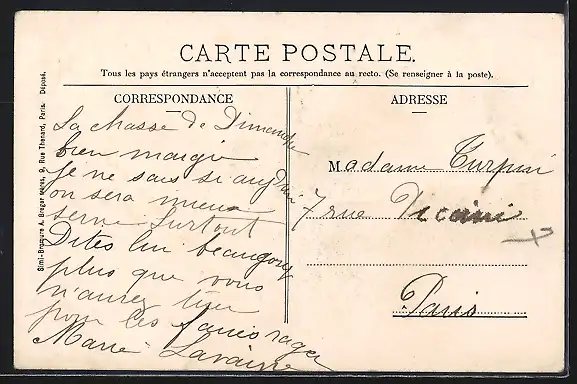 CARTE POSTALE.
Tous les pays étrangers n'acceptent pas la correspondance au recto. (Se renseigner à la poste).
CORRESPONDANCE
La chasse de Dimanche
bien maigre
Je ne sais si aujd'hui
on sera mieux
servi Surtout
Dites lui beaucoup
plus que vous
n'aurez
pour les
Marie
ADRESSE
Madame Turpin
7 rue
Paris
Simi-Bromure A. Breger frères, 9, Rue Thénard, Paris. Déposé.